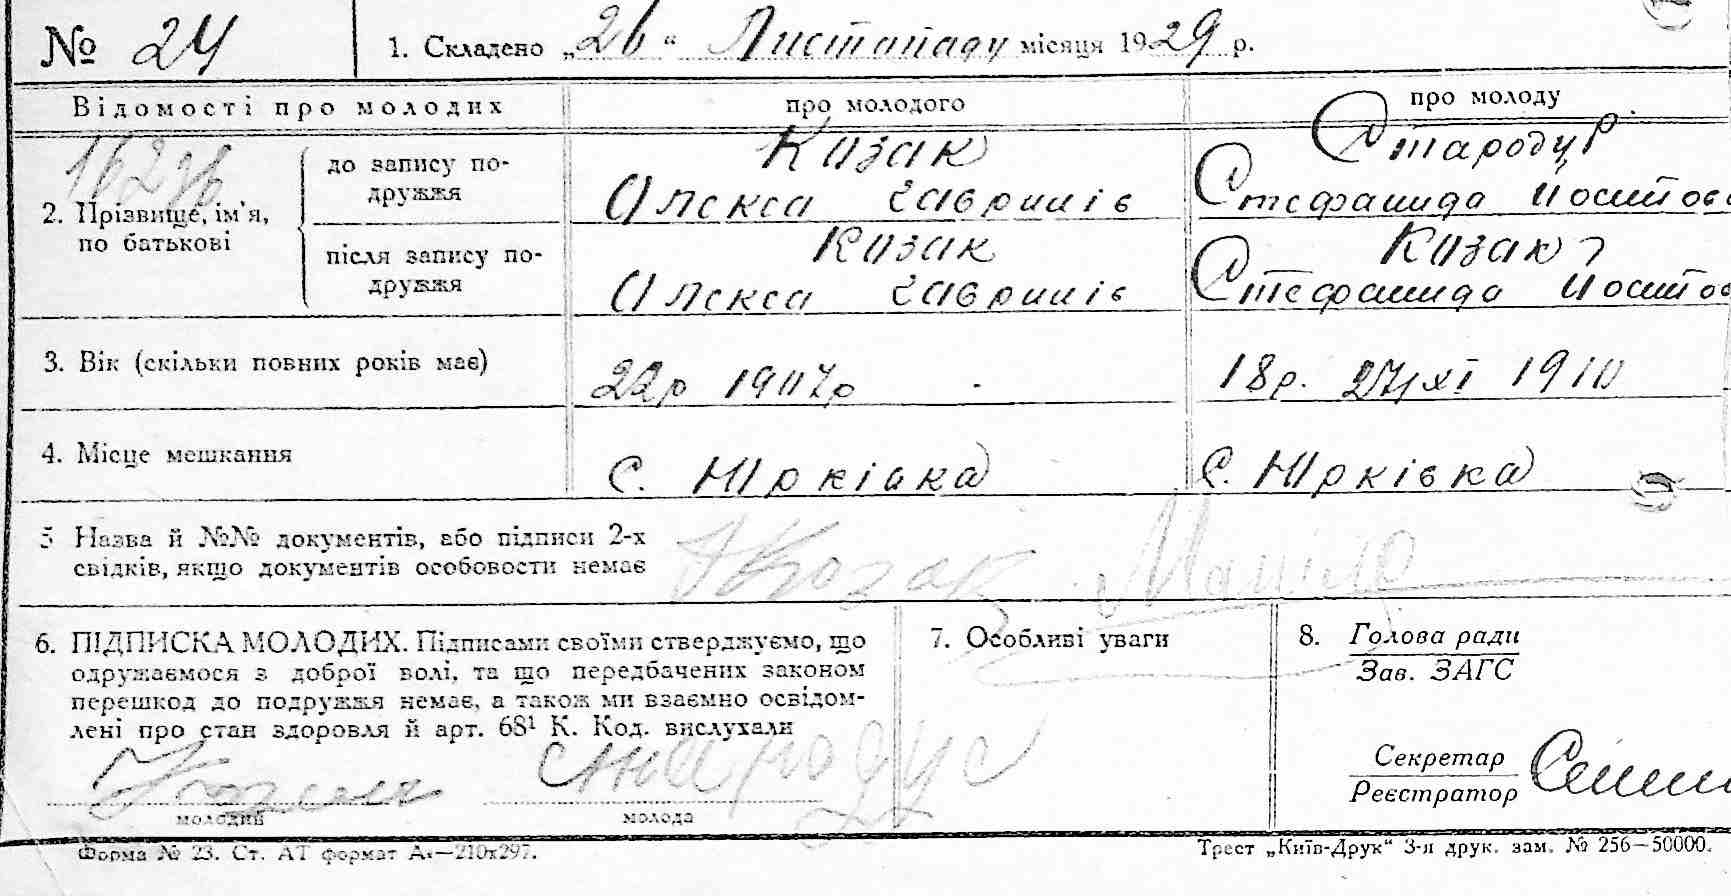 № 24 1. Складено „26“ Листопаду місяця 1929 р.
Відомості про молодих про молодого про молоду
2. Прізвище, ім'я, по батькові
до запису по-
дружжя
Козак
Олекса Гаврилів
Стародуб
Стефанида Йосипов
після запису по-
дружжя
Козак
Олекса Гаврилів
Козак
Стефанида Йосипов
3. Вік (скільки повних років має) 22р 1907р 18р. 27/XI 1910
4. Місце мешкання с. Юрківка с. Юрківка
5 Назва й №№ документів, або підписи 2-х
свідків, якщо документів особовости немає
Козак
6. ПІДПИСКА МОЛОДИХ. Підписами своїми стверджуємо, що
одружаємося з доброї волі, та що передбачених законом
перешкод до подружжя немає, а також ми взаємно освідом-
лені про стан здоровля й арт. 68¹ К. Код. вислухали
Козак
молодий
Стародуб
молода
7. Особливі уваги
8. Голова ради
Зав. ЗАГС
Секретар
Реєстратор
Форма № 23. Ст. АТ формат А₄—210х297.
Трест „Київ-Друк“ 3-я друк. зам. № 256—50000.